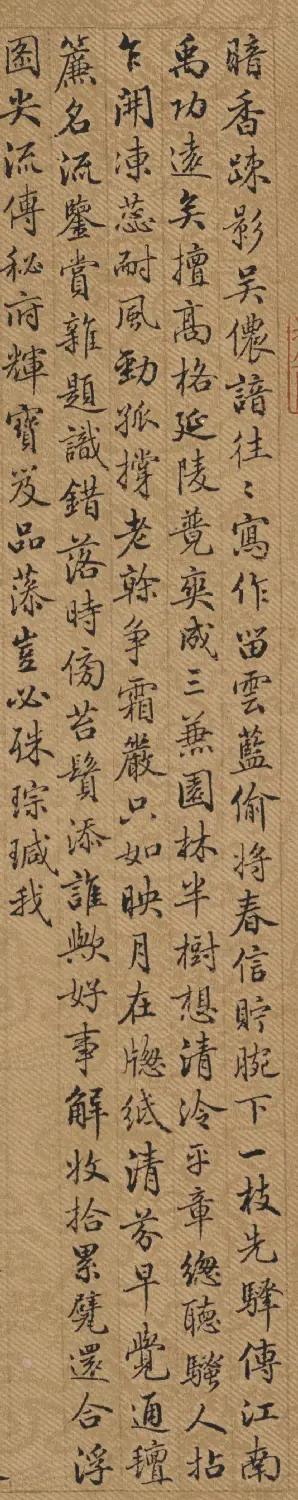 暗香疎影吴儂諳往〻寫作留雲藍偷将春信貯腕下一枝先驛傳江南
禹功遠矣擅高格延陵竟奕成三兼園林半樹想清泠平章總聽騷人拈
乍開凍蕊耐風勁孤撐老榦争霜嚴只如映月在牕紙清芬早覺通
簾名流鑒賞雜題識錯落時傍苔鬚添誰歟好事解收拾累甓還合浮
圖尖流傳秘府輝寶笈品藻豈必硃琮瑊我